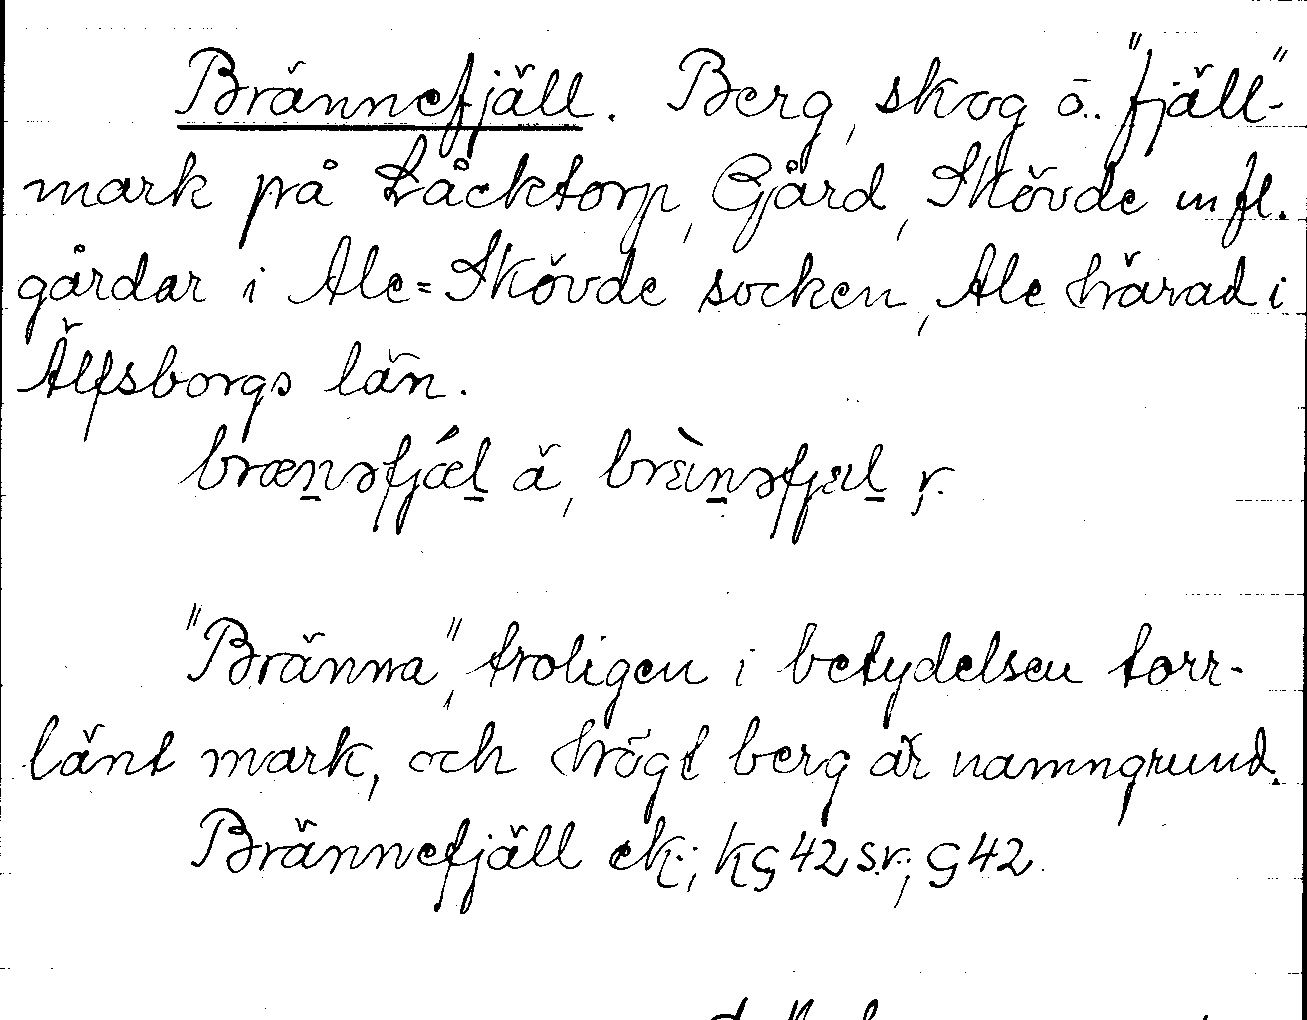 Brännefjäll. Berg, skog o. "fjäll"-
mark på Låcktorp, Gjård, Skövde m fl.
gårdar i Ale=Skövde socken, Ale härad i
Älfsborgs län.
brænəfjǽl ä, brὲnəfjɛl y.
"Bränna", troligen i betydelsen torr-
länt mark, och högt berg är namngrund.
Brännefjäll ek.; kG 42 s.r.; G 42